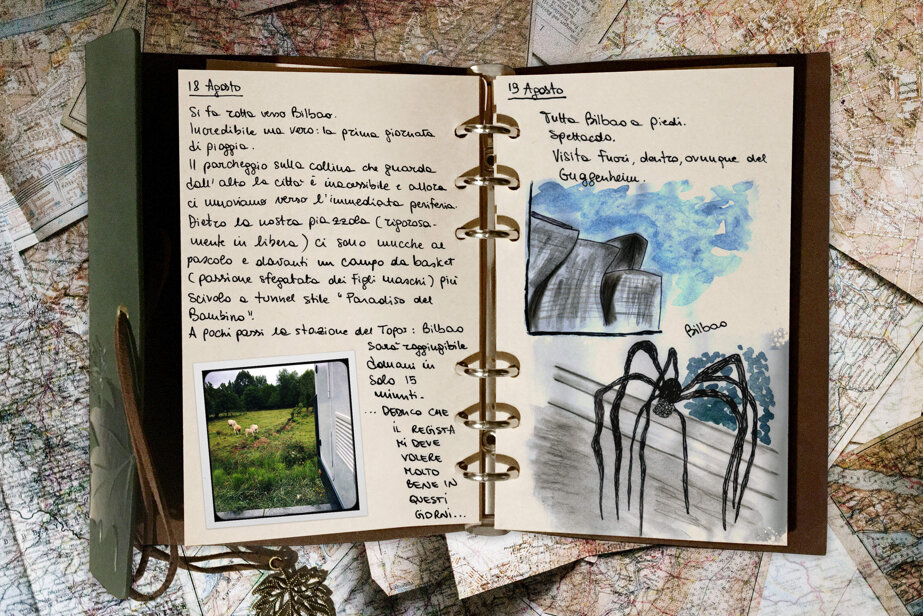 18 Agosto
Si fa rotta verso Bilbao.
Incredibile ma vero: la prima giornata
di pioggia.
Il parcheggio sulla collina che guarda
dall'alto la citta' è inaccessibile e allora
ci muoviamo verso l'immediata periferia.
Dietro la nostra piazzola (rigorosa-
mente in libera) ci sono mucche al
pascolo e davanti un campo da basket
(passione sfegatata dei figli maschi) più
scivolo a tunnel stile "Paradiso del
Bambino".
A pochi passi la stazione del Topo: Bilbao
sara' raggiungibile
domani in
solo 15
minuti.
... DEDUCO CHE
IL REGISTA
MI DEVE
VOLERE
MOLTO
BENE IN
QUESTI
GIORNI...
19 Agosto
Tutta Bilbao a piedi.
Spettacolo.
Visita fuori, dentro, ovunque del
Guggenheim.
Bilbao